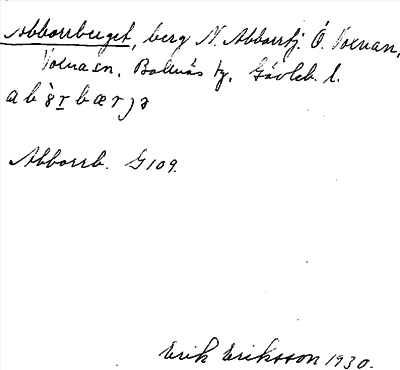 Abborrberget, berg N. Abborrtj. Ö. Voxnan,
Voxna sn. Bollnäs tg. Gävleb. l.
Abborrb. G109.
Erik Eriksson 1930.